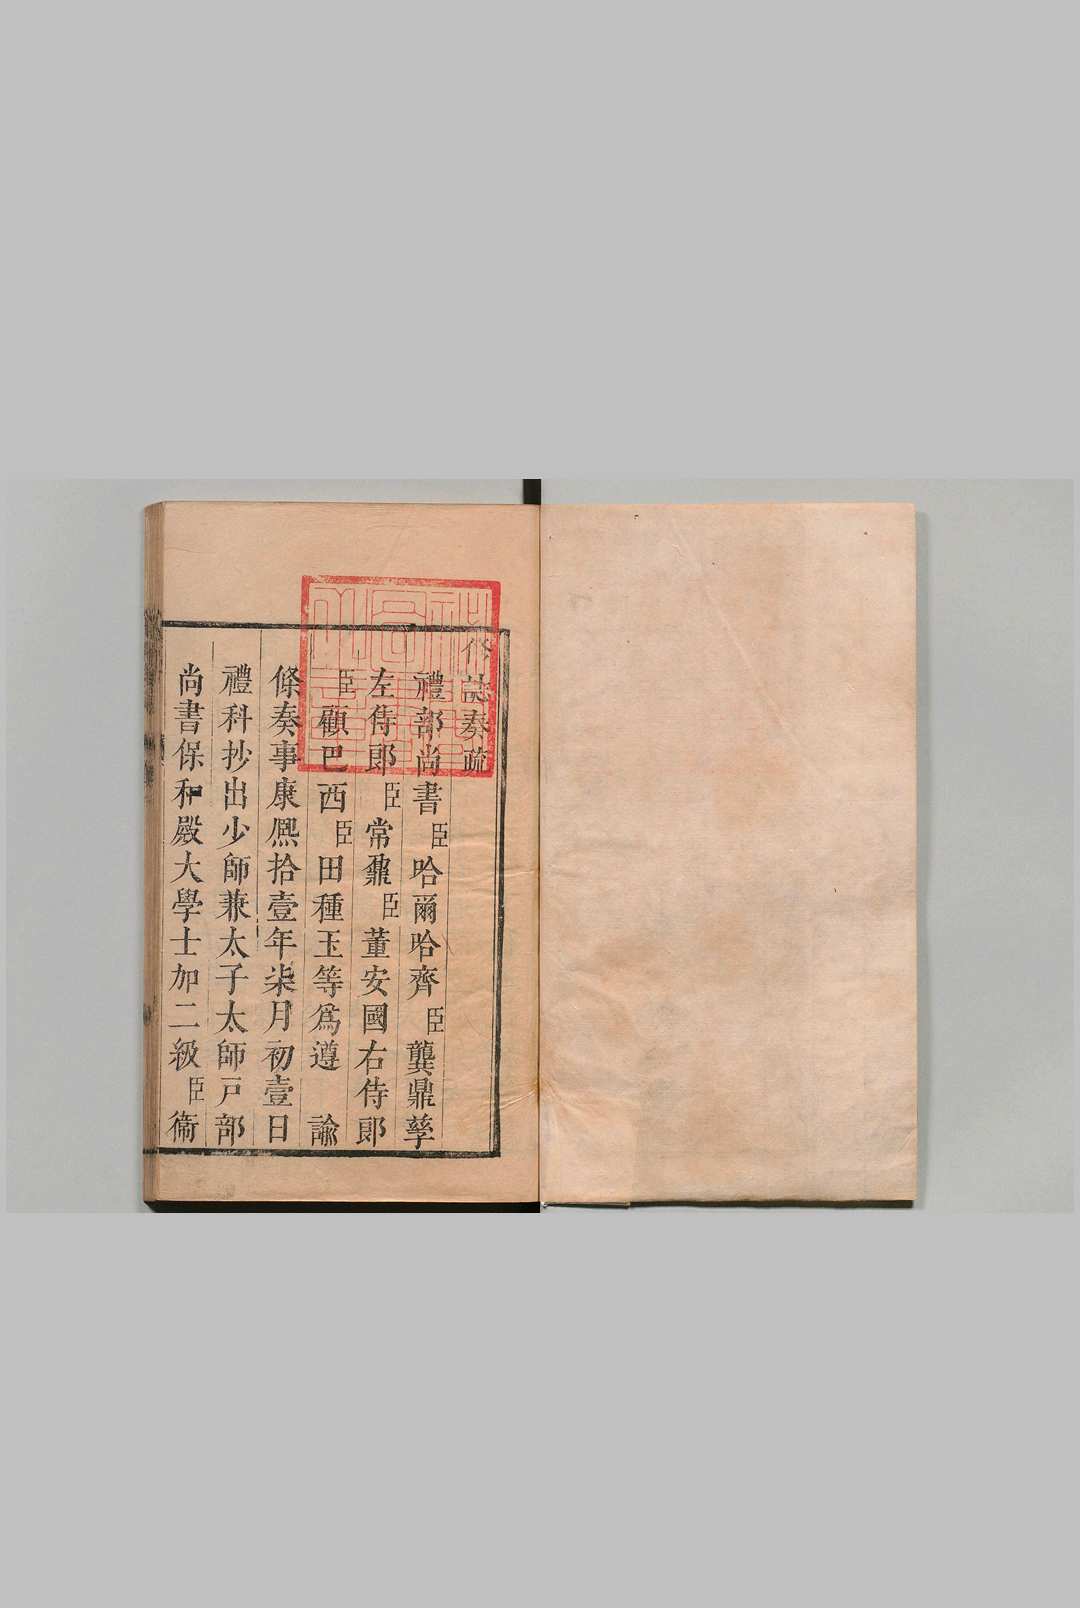 修誌奏疏
禮部尚書臣哈爾哈齊臣龔鼎孳
左侍郎臣常鼐臣董安國右侍郎
臣顧巴西臣田種玉等爲遵諭
條奏事康熈拾壹年柒月初壹日
禮科抄出少師兼太子太師戸部
尚書保和殿大學士加二級臣衞